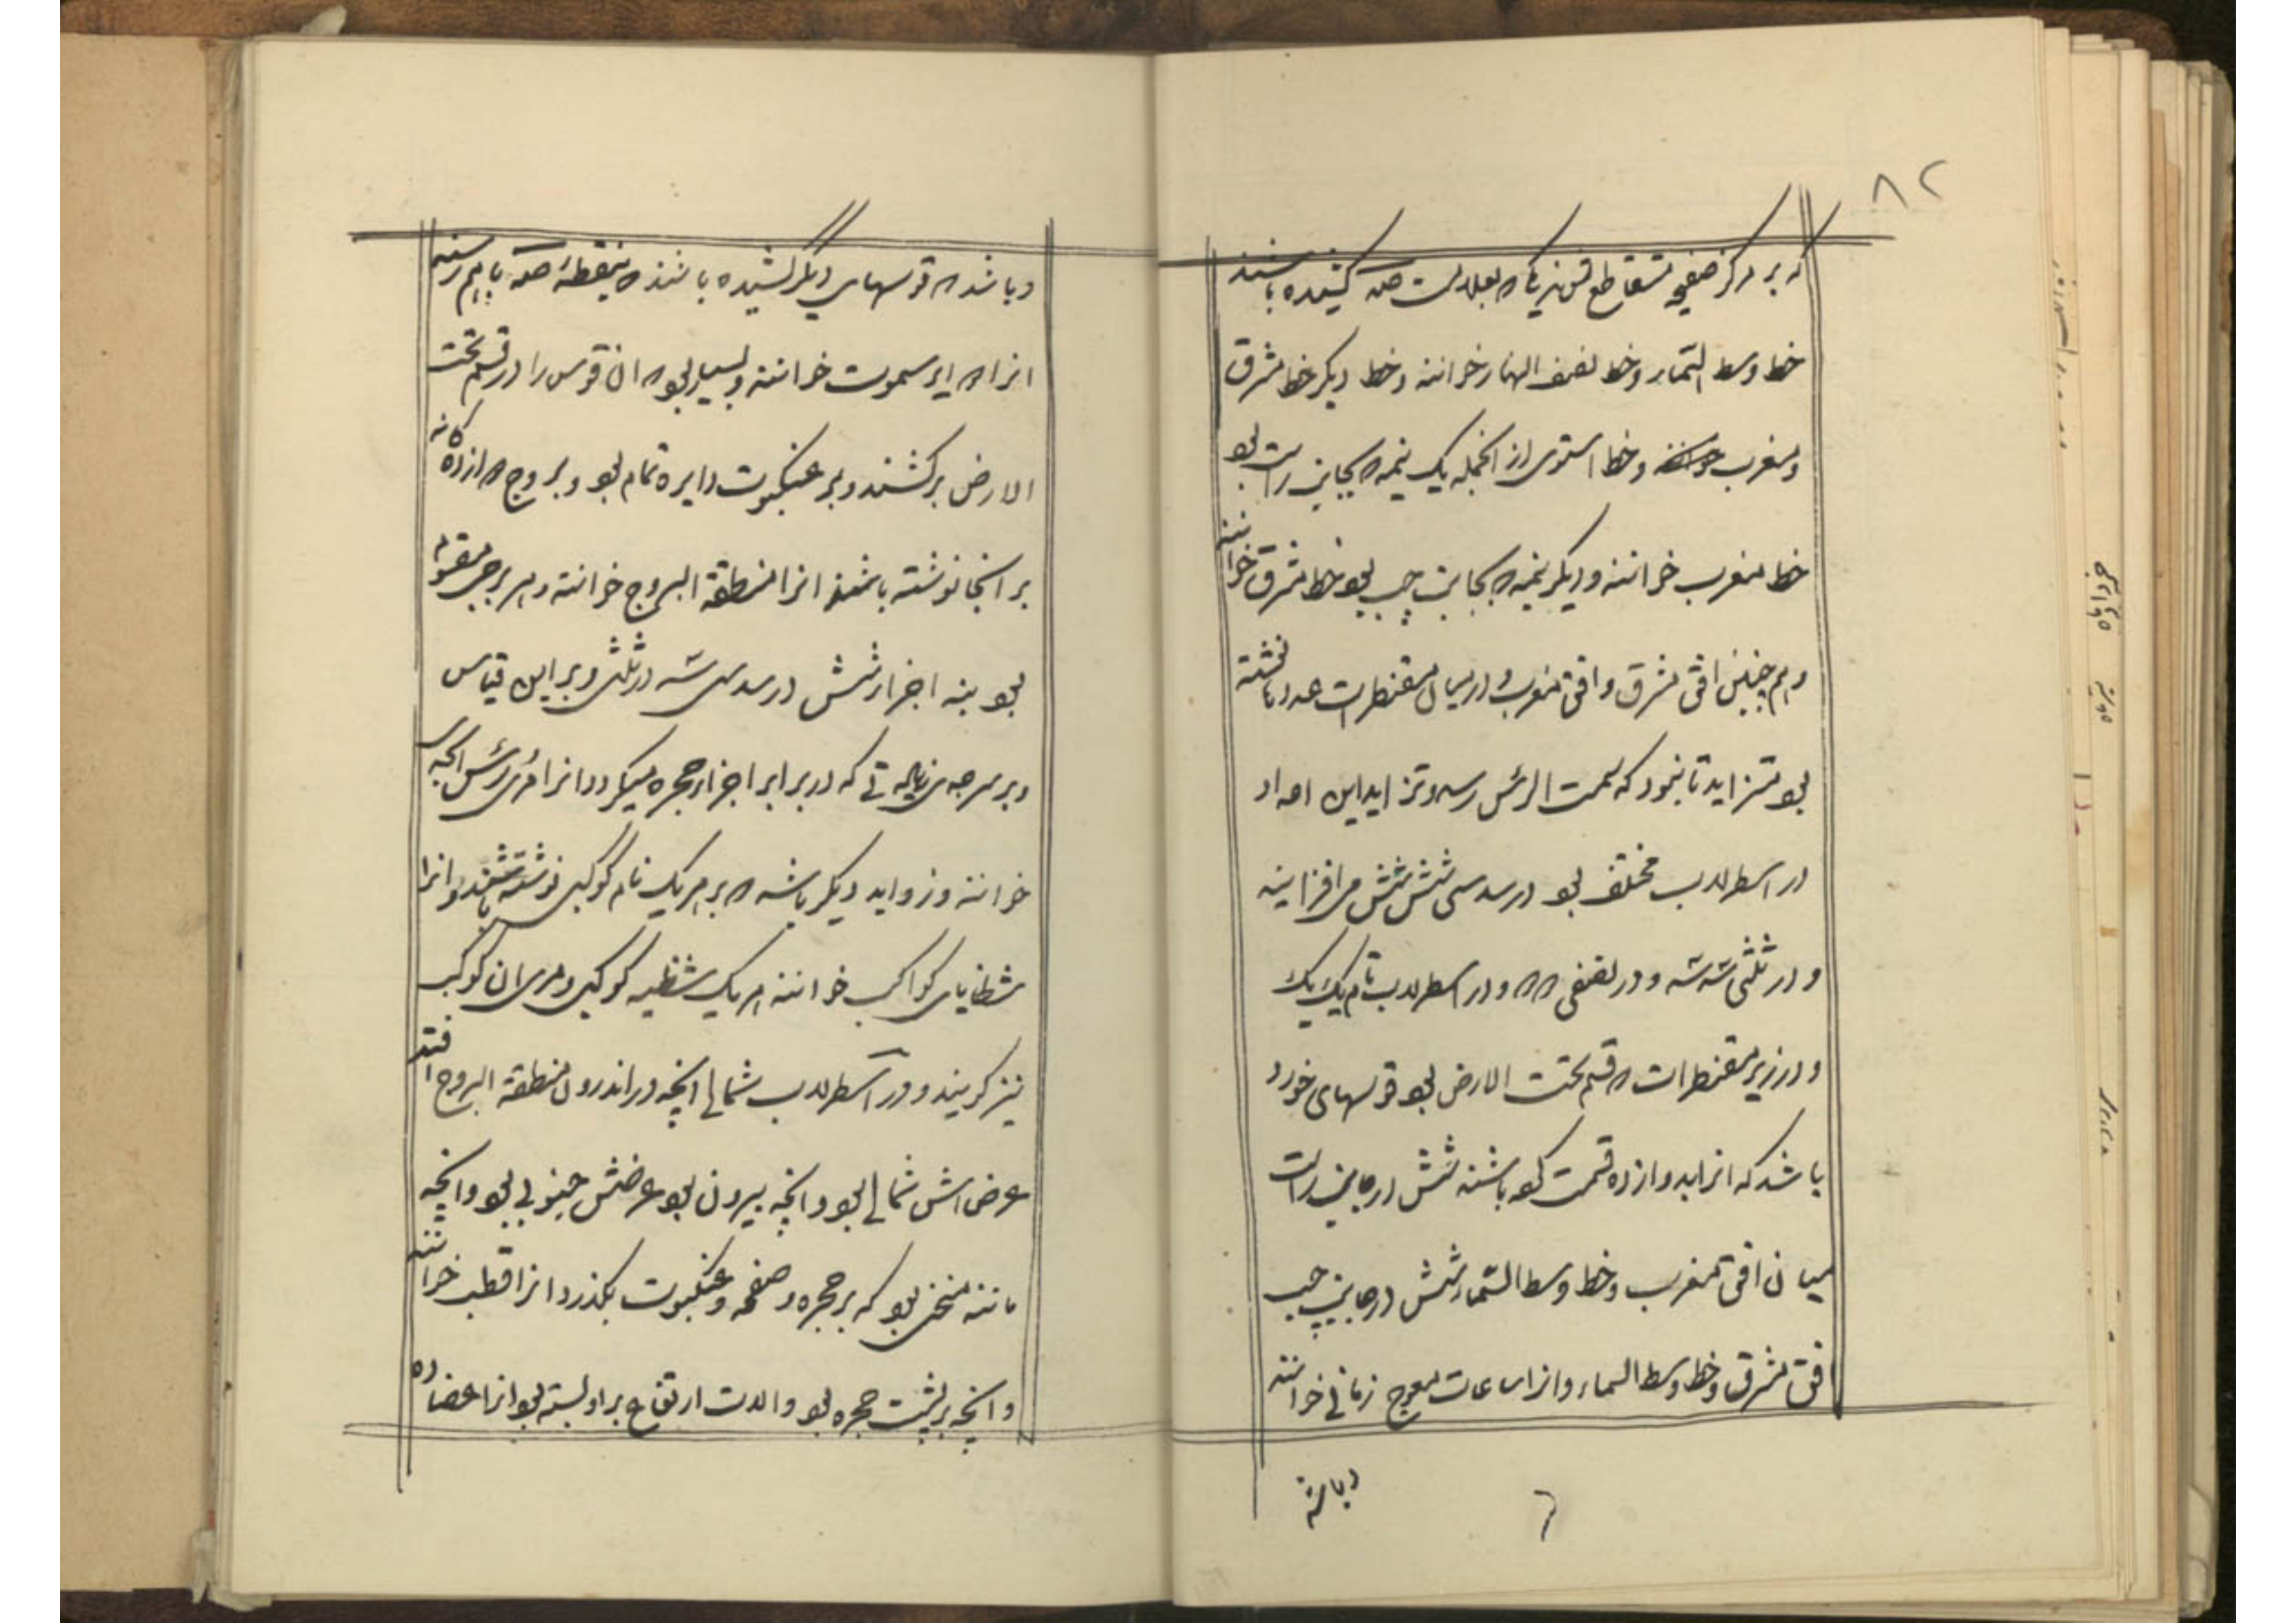 ۸۲
که بر مرکز صفیحه متقاطع
خط وسط السماء و خط نصف النهار خوانند و خط دیگر خط مشرق
و مغرب خوانند و خط استوی از آنجمله یک نیمه که بجانب راست بود
خط مغرب خوانند و دیگر نیمه که بجانب چپ بود خط مشرق خوانند
و هم چنین افق مشرق و افق مغرب و در میان مقنطرات عددها نوشته
بود متزاید تا بنود که بسمت الرأس رسد و تزاید این اعداد
در اسطرلاب مختلف بود در سدسی شش شش می افزایند
و در ثلثی سه سه و در نصفی ۲ ۲ و در اسطرلاب تام یک یک
و در زیر مقنطرات که قسم تحت الارض بود قوسهای خورد
باشد که انرا بدوازده قسمت کرده باشند شش در جانب راست
میان افق مغرب و خط وسط السماء و شش در جانب چپ
افق مشرق و خط وسط السماء و انرا ساعات معوج زمانی خوانند
و باشد
و باشد که قوسهای دیگر کشیده باشند که بنقطهٔ باهم رسند
انرا دوایر سموت خوانند و بسیار بود که ان قوس را در قسم تحت
الارض برکشند و بر عنکبوت دایره تمام بود و بروج دوازده کانه
بر انجا نوشته باشند انرا منطقة البروج خوانند و هر برجی مقسوم
بود بنه اجزا شش در سدسی سه در ثلثی و بر این قیاس
و بر سر جدی زیاده‌تی که در برابر اجزاء حجره میکردد انرا مری رأس الجدی
خوانند و زواید دیگر باشد که بر هر یک نام کوکبی نوشته باشند و انرا
شظایای کواکب خوانند هر یک شظیه کوکبی و مری ان کوکب
نیز کویند و در اسطرلاب شمالی انچه در اندرون منطقة البروج افتد
عرض اش شمالی بود و انچه بیرون بود عرضش جنوبی بود و انچه
مانند میخی بود که بر حجره و صفحه و عنکبوت بکذرد انرا قطب خوانند
و انچه بر پشت حجره بود و الات ارتفاع بر او بسته بود انرا عضاده